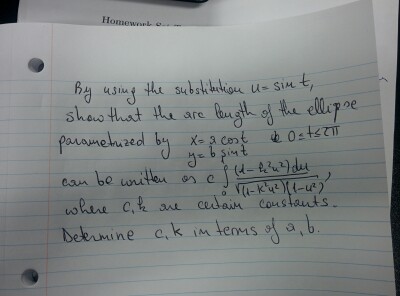 Homework
By using the substitution u = sin t,
show that the arc length of the ellipse
parametrized by x = a cos t 0 ≤ t ≤ 2π
y = b sin t
can be written as c ∫ (1 - k²u²) du / √(1 - k²u²)(1 - u²) ,
where c, k are certain constants.
Determine c, k in terms of a, b.